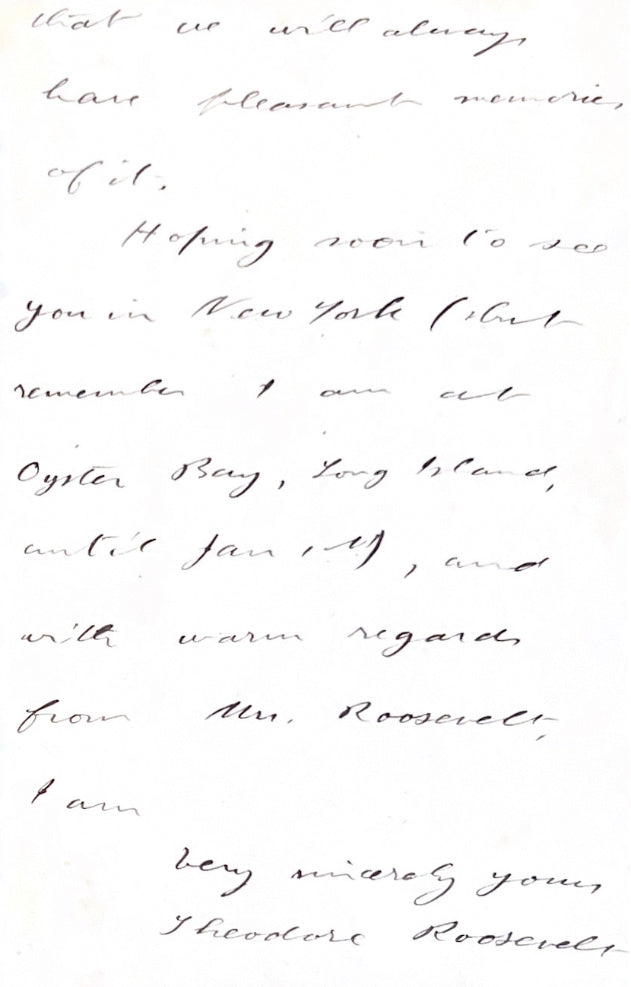 that we will always
have pleasant memories
of it.
Hoping soon to see
you in New York (but
remember I am at
Oyster Bay, Long Island,
until Jan
), and
with warm regards
from Mrs. Roosevelt,
I am
Very sincerely yours
Theodore Roosevelt